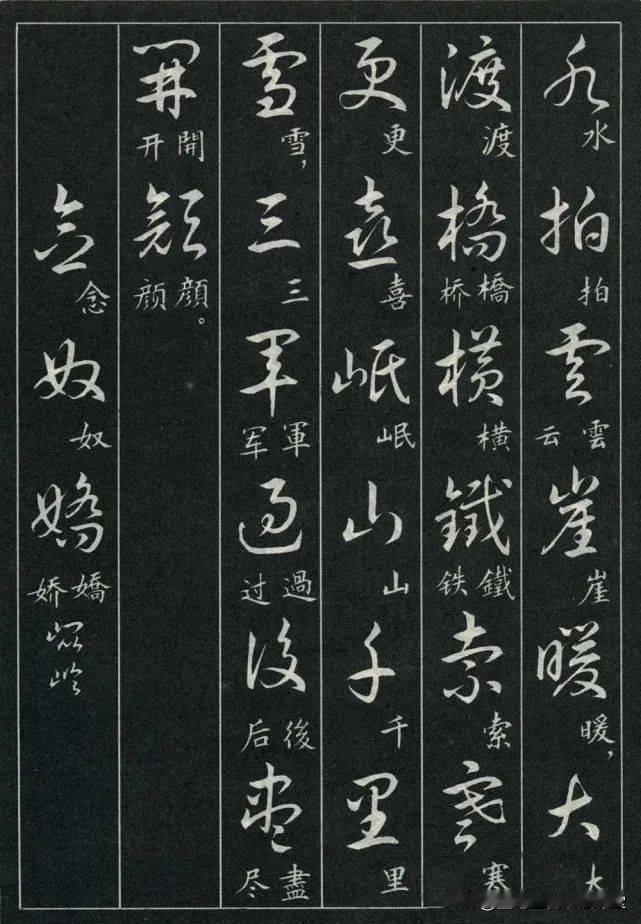 水拍雲崖暖大
水拍雲云崖暖，大
渡橋横鐵索寒
渡橋桥横鐵铁索寒
更喜岷山千里
更喜岷山千里
雪三軍過後盡
雪，三軍军過过後后盡尽
開顔
開开顔颜。
念奴嬌
念奴嬌娇